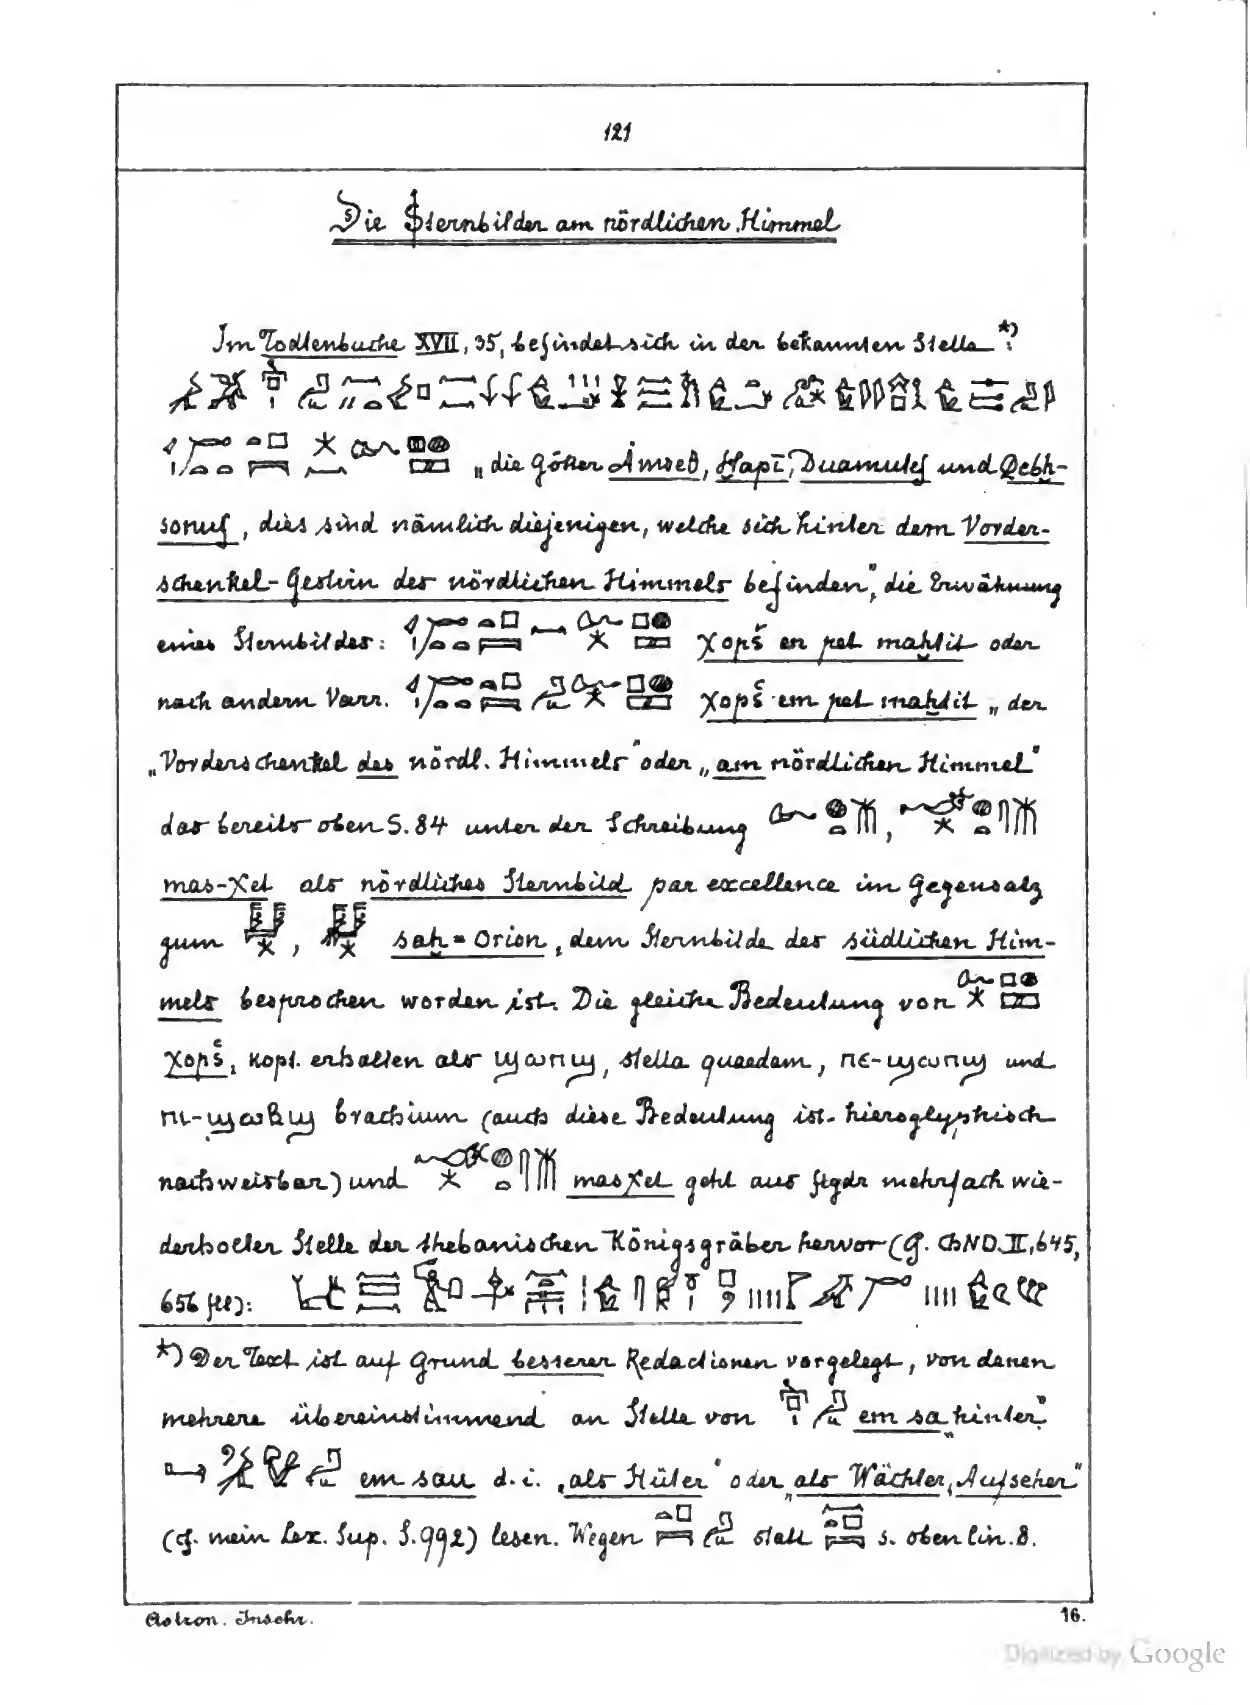 121
Die Sternbilder am nördlichen Himmel
Im Todtenbuche XVII, 35, befindet sich in der bekannten Stelle *)
„die Götter Amseθ, Ḥapi, Duamutef und Qebḥ-
senuf, dies sind nämlich diejenigen, welche sich hinter dem Vorder-
schenkel-Gestirn des nördlichen Himmels befinden", die Erwähnung
eines Sternbildes: χopš en pet maḥtit oder
nach andern Varr. χopš em pet maḥtit „der
„Vorderschenkel des nördl. Himmels" oder „am nördlichen Himmel"
das bereits oben S. 84 unter der Schreibung ,
mas-χet als nördliches Sternbild par excellence im Gegensatz
zum , saḥ = Orion, dem Sternbilde des südlichen Him-
mels besprochen worden ist. Die gleiche Bedeutung von
χopš, kopt. erhalten als ϣⲱⲡϣ, stella quaedam, ⲡⲉ-ϣⲱⲡϣ und
ⲡⲓ-ϣⲱⲃϣ brachium (auch diese Bedeutung ist hieroglyphisch
nachweisbar) und masχet geht aus flgdr mehrfach wie-
derholter Stelle der thebanischen Königsgräber hervor (cf. ChND. II, 645,
656 fll):
*) Der Text ist auf Grund besserer Redactionen vorgelegt, von denen
mehrere übereinstimmend an Stelle von em sa „hinter"
em sau d. i. „als Hüter" oder „als Wächter, Aufseher"
(cf. mein Lex. Sup. S. 992) lesen. Wegen statt s. oben lin. 8.
Astron. Inschr. 16.
Digitized by Google